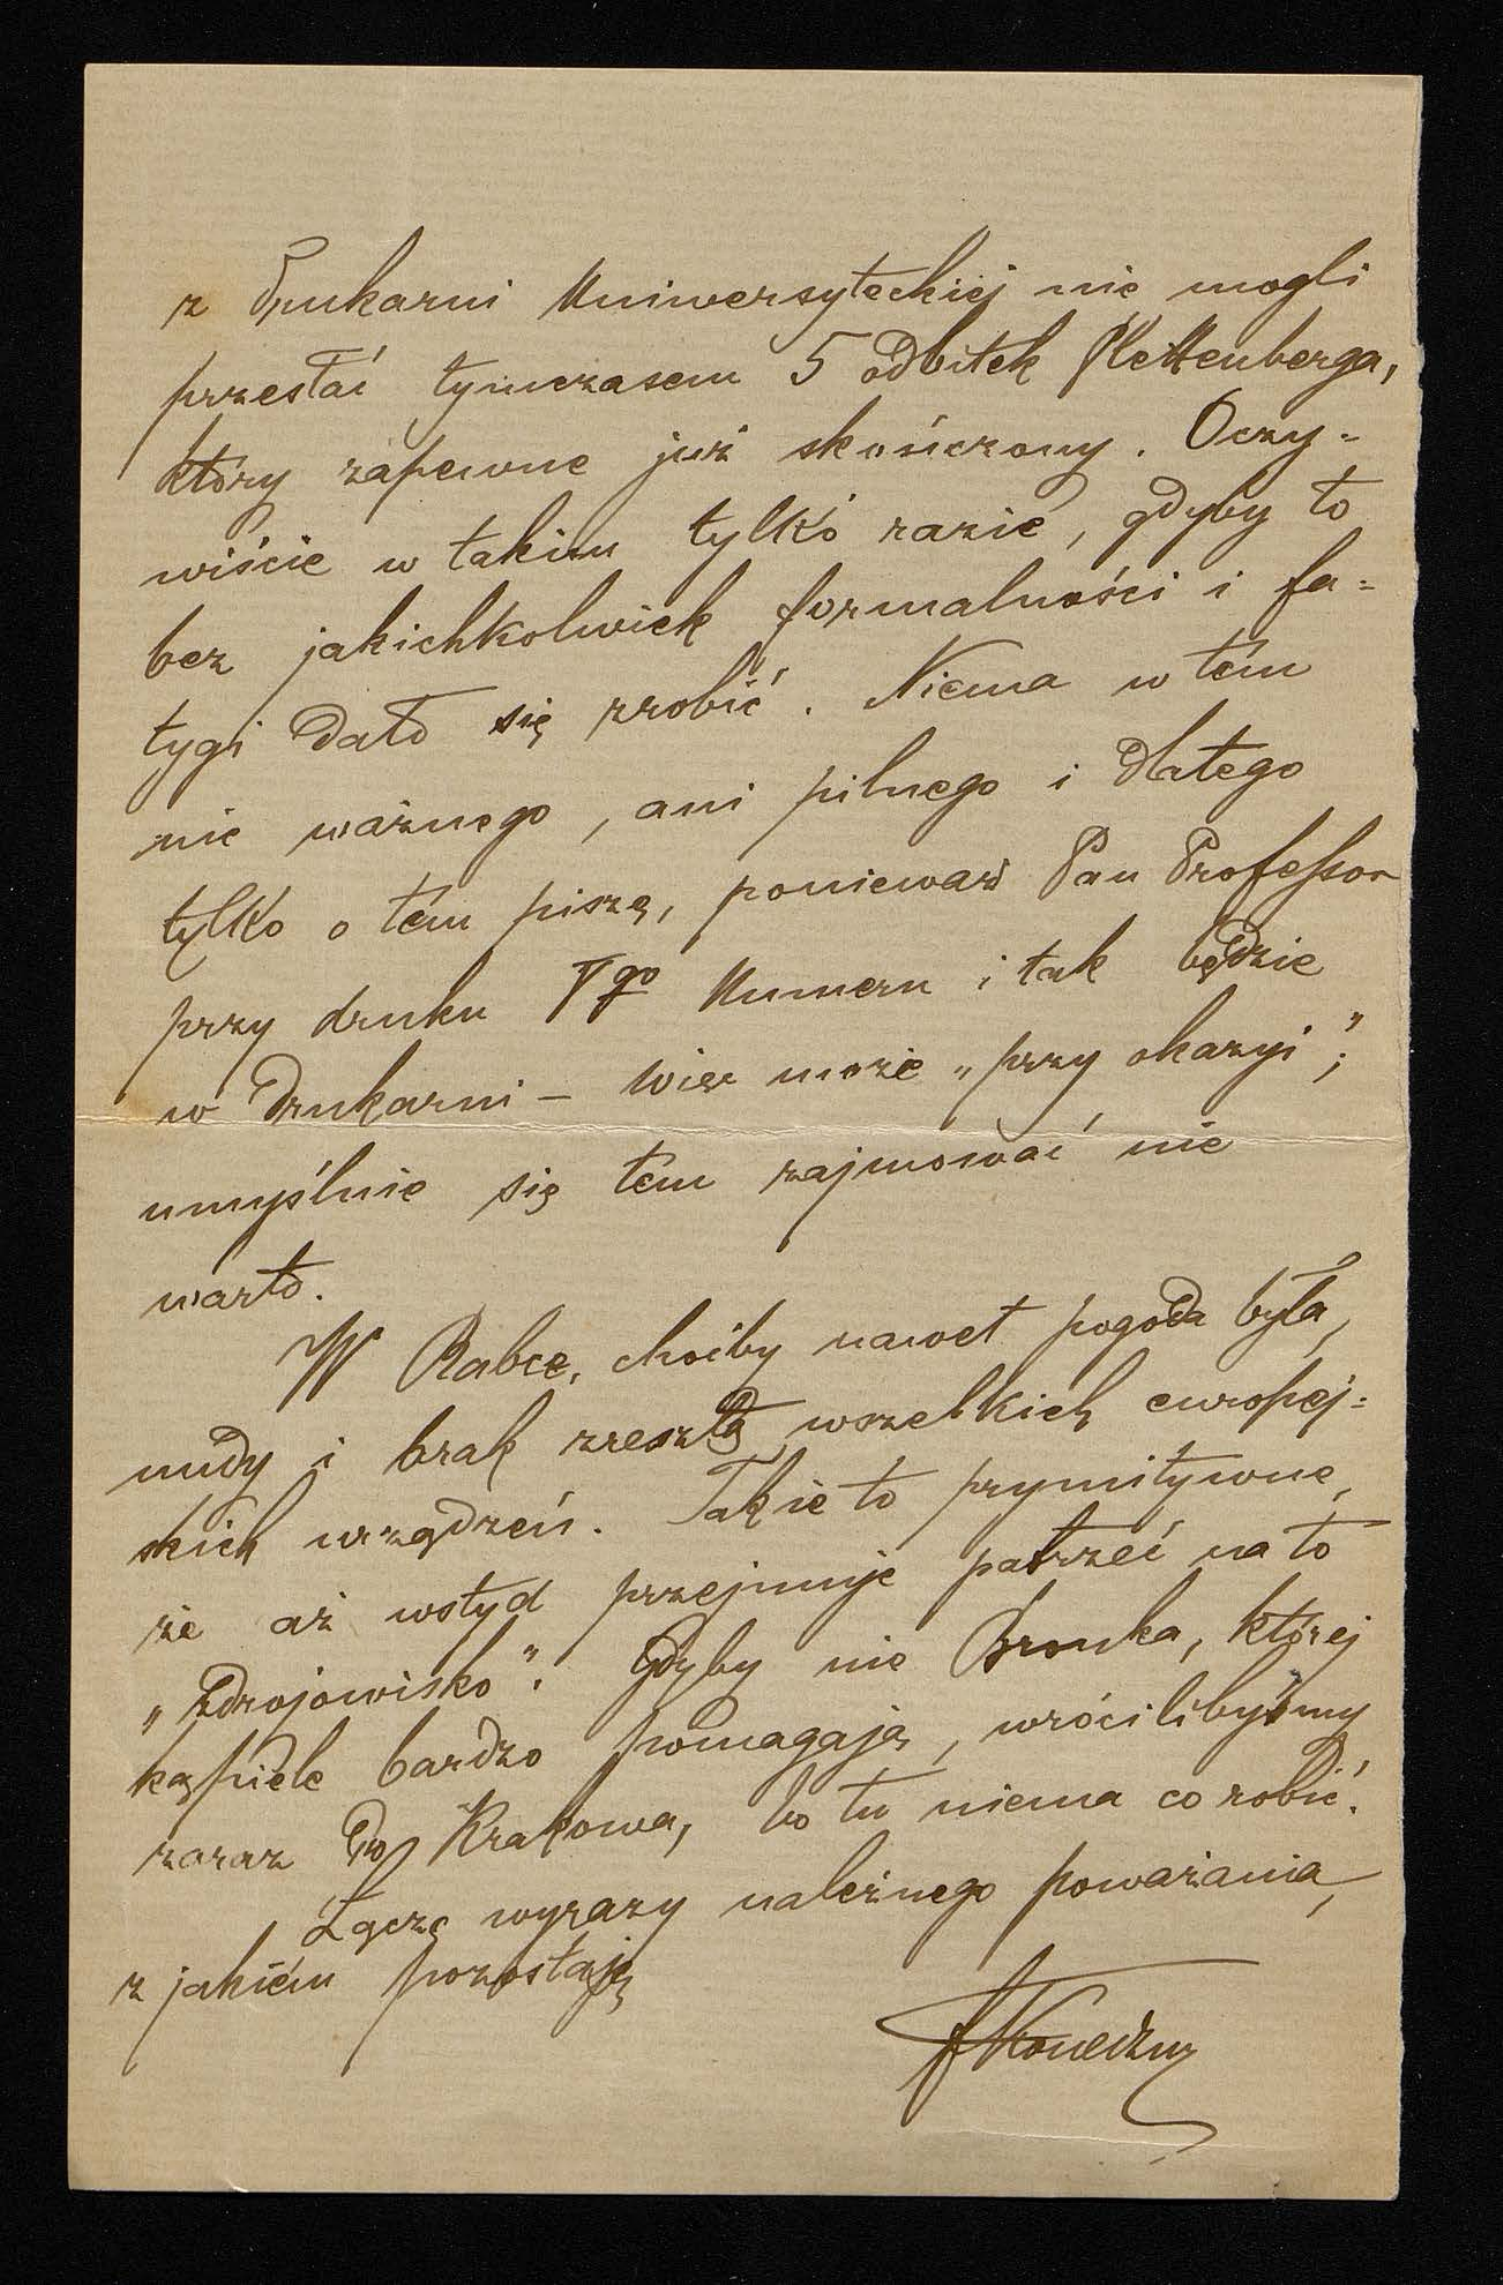 z Drukarni Uniwersyteckiej nie mogli
przesłać tymczasem 5 odbitek Plettenberga,
który zapewne już skończony. Oczy=
wiście w takim tylko razie, gdyby to
bez jakichkolwiek formalności i fa=
tygi dało się zrobić. Niema w tém
nic ważnego, ani pilnego i dlatego
tylko o tém piszę, ponieważ Pan Professor
przy druku Vgo Numeru i tak będzie
w Drukarni – więc może „przy okazyi”;
umyślnie się tém zajmować nie
warto.
W Rabce, choćby nawet pogoda była,
nudy i brak zresztą wszelkich europej=
skich urządzeń. Takie to prymitywne,
że aż wstyd przejmuje patrzeć na to
„zdrojowisko”. Gdyby nie Bronka, której
kąpiele bardzo pomagają, wrócilibyśmy
zaraz do Krakowa, bo tu niema co robić.
Łączę wyrazy należnego poważania,
z jakiém pozostaję
FKoneczny